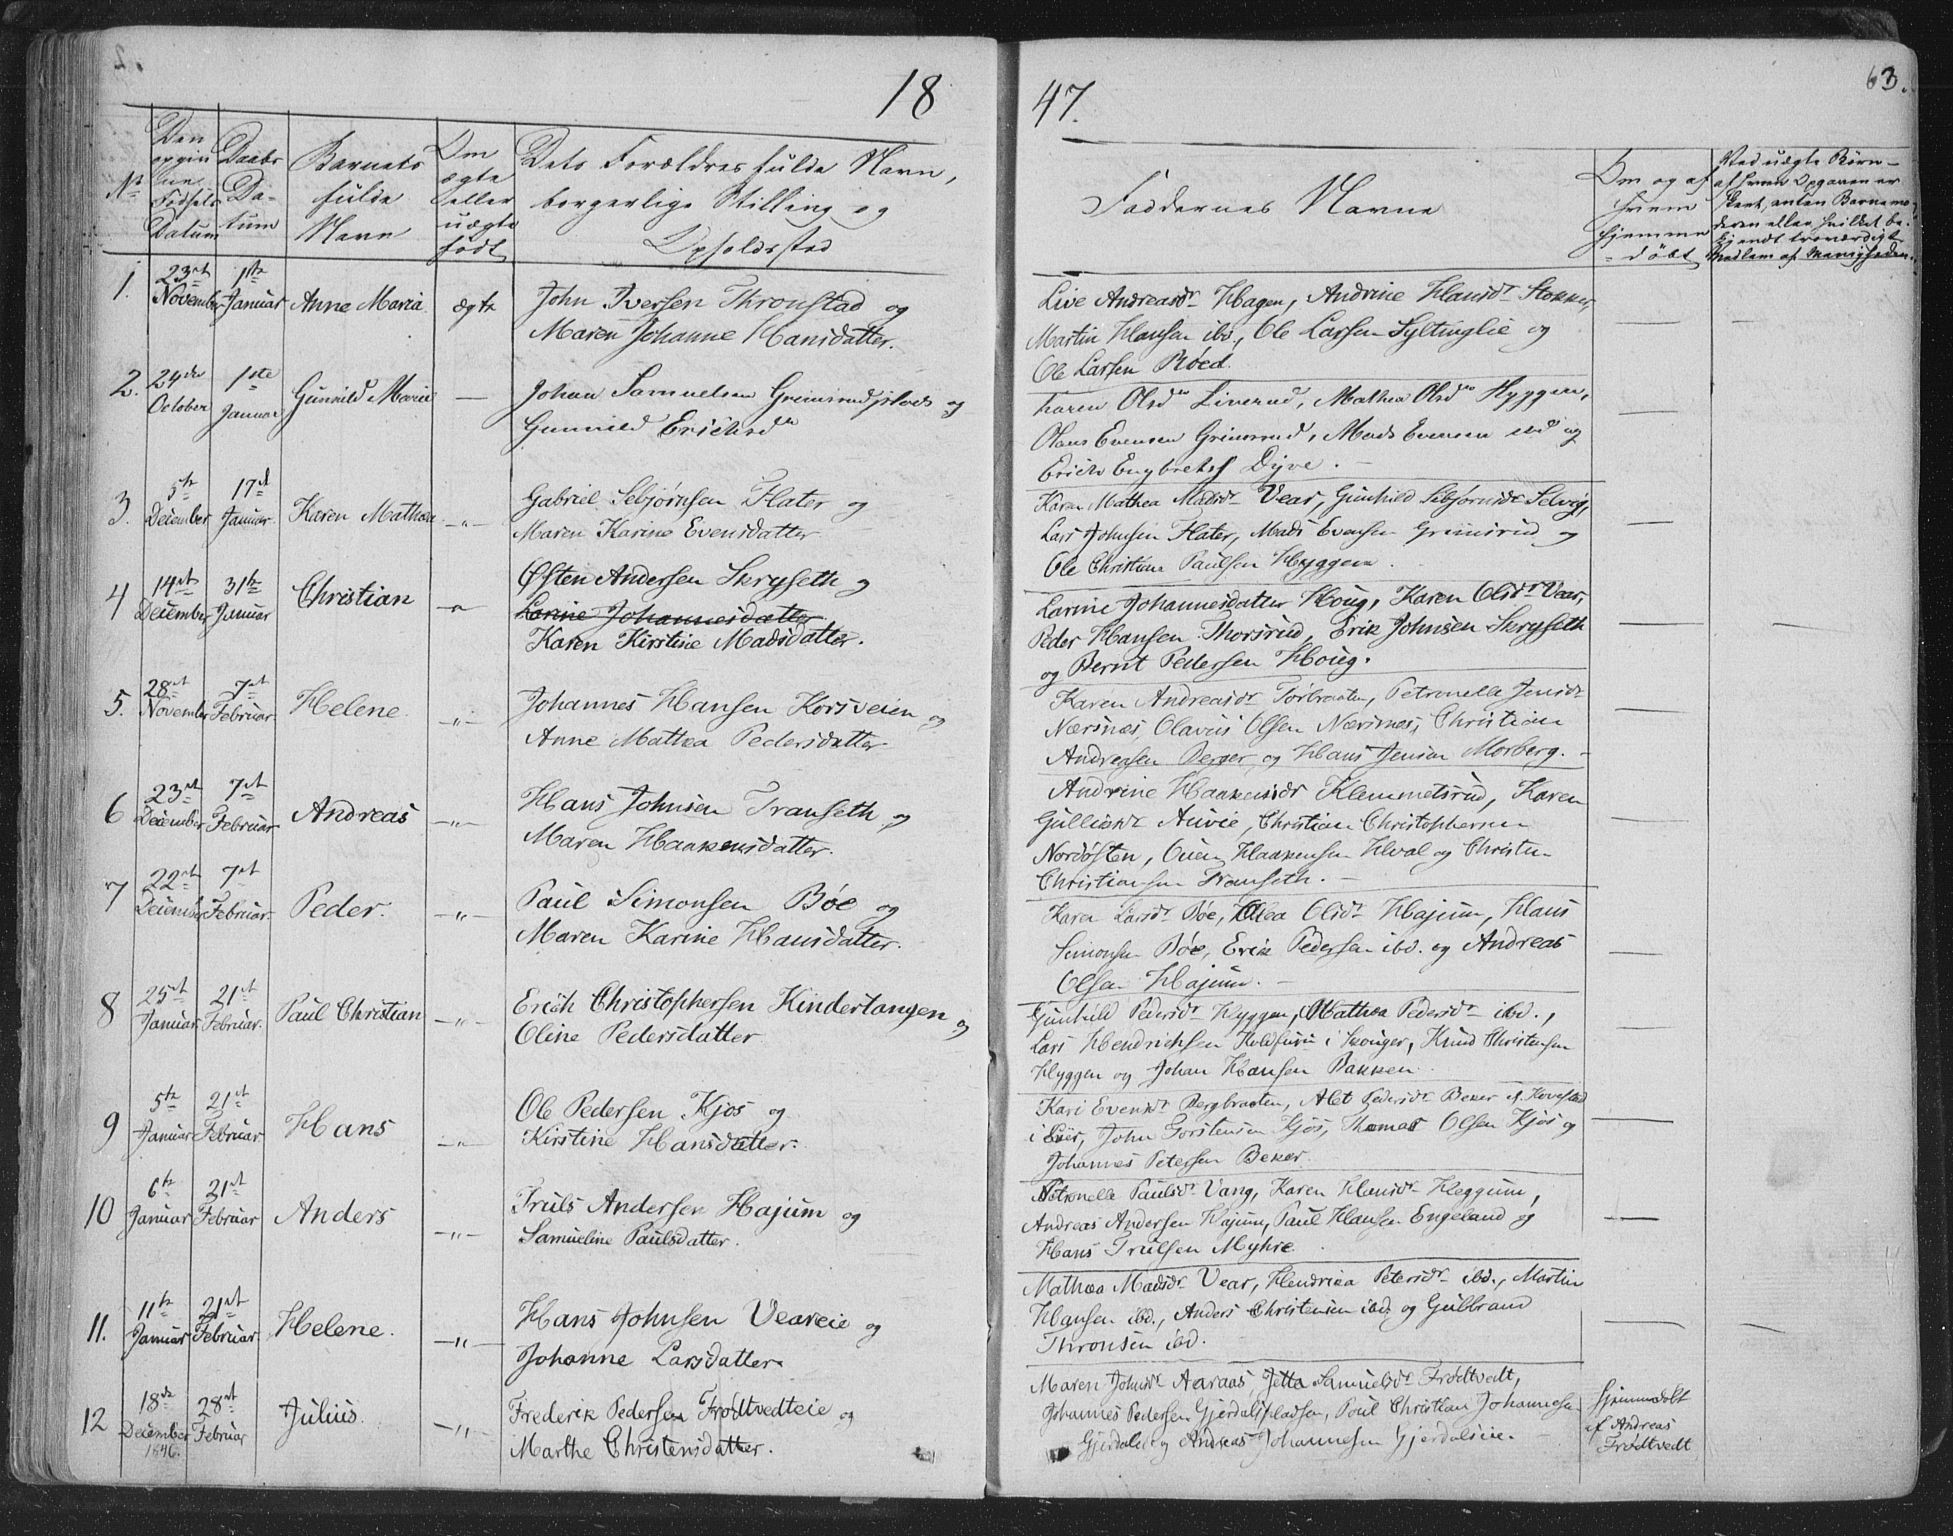 18 47.
63.
No
Den opgivne Fødsels Datum
Daabs Datum
Barnets fulde Navn
Om ægte eller uægte født
Dets Forældres fulde Navn, borgerlige Stilling og Opholdssted
Faddernes Navne
Om og af hvem hjemmedøbt
Ved uægte Børn af hvem Opgaven er skeet, enten Barnemoderen eller hvilket bekjendt troværdigt Medlem af Menigheden.
1. 23de November 1ste Januar Anne Maria ægte
John Iversen Thronstad og
Maren Johanne Hansdatter.
Live Andreasdr Hagen, Andrine Hansdr Stokker,
Martin Hansen ibd., Ole Larsen Syltinglie og
Ole Larsen Røed.
2. 24de October 1ste Januar Gunnild Maria —
Johan Samuelsen Grimsrudpladsen og
Gunnild Erichsdr
Karen Olsdr Linerud, Mathea Olsdr Hyggen,
Hans Evensen Grimsrud, Mads Evensen ibd og
Erich Engebrets Dyve.
3. 5te December 17de Januar Karen Mathea —"—
Gabriel Sebjørnsen Flater og
Maren Karine Evensdatter
Karen Mathea Madsdr Vear, Gunhild Sebjørnsdr Selvig,
Lars Johnsen Flater, Mads Evensen Grimsrud og
Ole Christian Paulsen Hyggen.
4 14de December 31te Januar Christian —"—
Østen Andersen Skryseth og
Larine Johannesdatter
Karen Kirstine Madsdatter.
Larine Johannesdatter Houg, Karen Olsdr Vear,
Peder Hansen Thorsrud, Erik Johnsen Skryseth
og Bernt Pedersen Houg.
5. 28de November 7de Februar Helene —"—
Johannes Hansen Korsveien og
Anne Mathea Pedersdatter
Karen Andreasdr Torbraaten, Petronelle Jensdr
Nærsnæs, Olavus Olsen Nærsnæs, Christian
Andreasen Berger og Hans Jensen Morberg.
6 23de December 7de Februar Andreas —"—
Hans Johnsen Transeth og
Maren Haakensdatter.
Andrine Haakensdr Klemmetsrud, Karen
Gulliksdr Auvie, Christian Christophersen
Nordøsten, Ouen Haakensen Hval og Christen
Christiansen Transeth.
7 22de December 7de Februar Peder. —"—
Paul Simonsen Bøe og
Maren Karine Hansdatter.
Karen Larsdr Bøe, Olea Olsdr Hajum, Hans
Simonsen Bøe, Erik Pedersen ibd. og Andreas
Olsen Hajum.
8 25de Januar 21de Februar. Paul Christian —"—
Erich Christophersen Kindertangen og
Oline Pedersdatter
Gunhild Pedersdr Hyggen, Mathea Pedersdr ibd.,
Lars Hendrichsen Holdfuru i Skouger, Knud Christensen
Hyggen og Johan Hansen Bakken.
9 5te Januar 21de Februar Hans —"—
Ole Pedersen Kjos og
Kirstine Hansdatter.
Kari Evensdr Bergbraaten, Alet Pedersdr Beker af Hovestad
i Lier, John Torstensen Kjos, Thomas Olsen Kjos og
Johannes Petersen Beker.
10 6te Januar 21de Februar Anders —"—
Truls Andersen Hajum og
Samueline Paulsdatter.
Petronelle Paulsdr Vang, Karen Hansdr Heggum,
Andreas Andersen Hajum, Paul Hansen Engeland og
Hans Trulsen Myhre.
11. 11te Januar 21de Februar Helene. —"—
Hans Johnsen Veareie og
Johanne Larsdatter
Mathea Madsdr Vear, Hendrica Petersdr ibd., Martin
Hansen ibd., Anders Christensen ibd. og Gulbrand
Thronsen ibd.
12 18de December 1846. 28de Februar Julius. —"—
Frederik Pedersen Frødtvedteie og
Marthe Christensdatter.
Maren Johnsdr Aaraas, Jetta Samuelsdr Frødtvedt,
Johannes Pedersen Gjerdalspladsen, Poul Christian Johannesen
Gjerdal og Andreas Johannesen Gjerdaleie.
hjemmedøbt
af Andreas
Frødtvedt